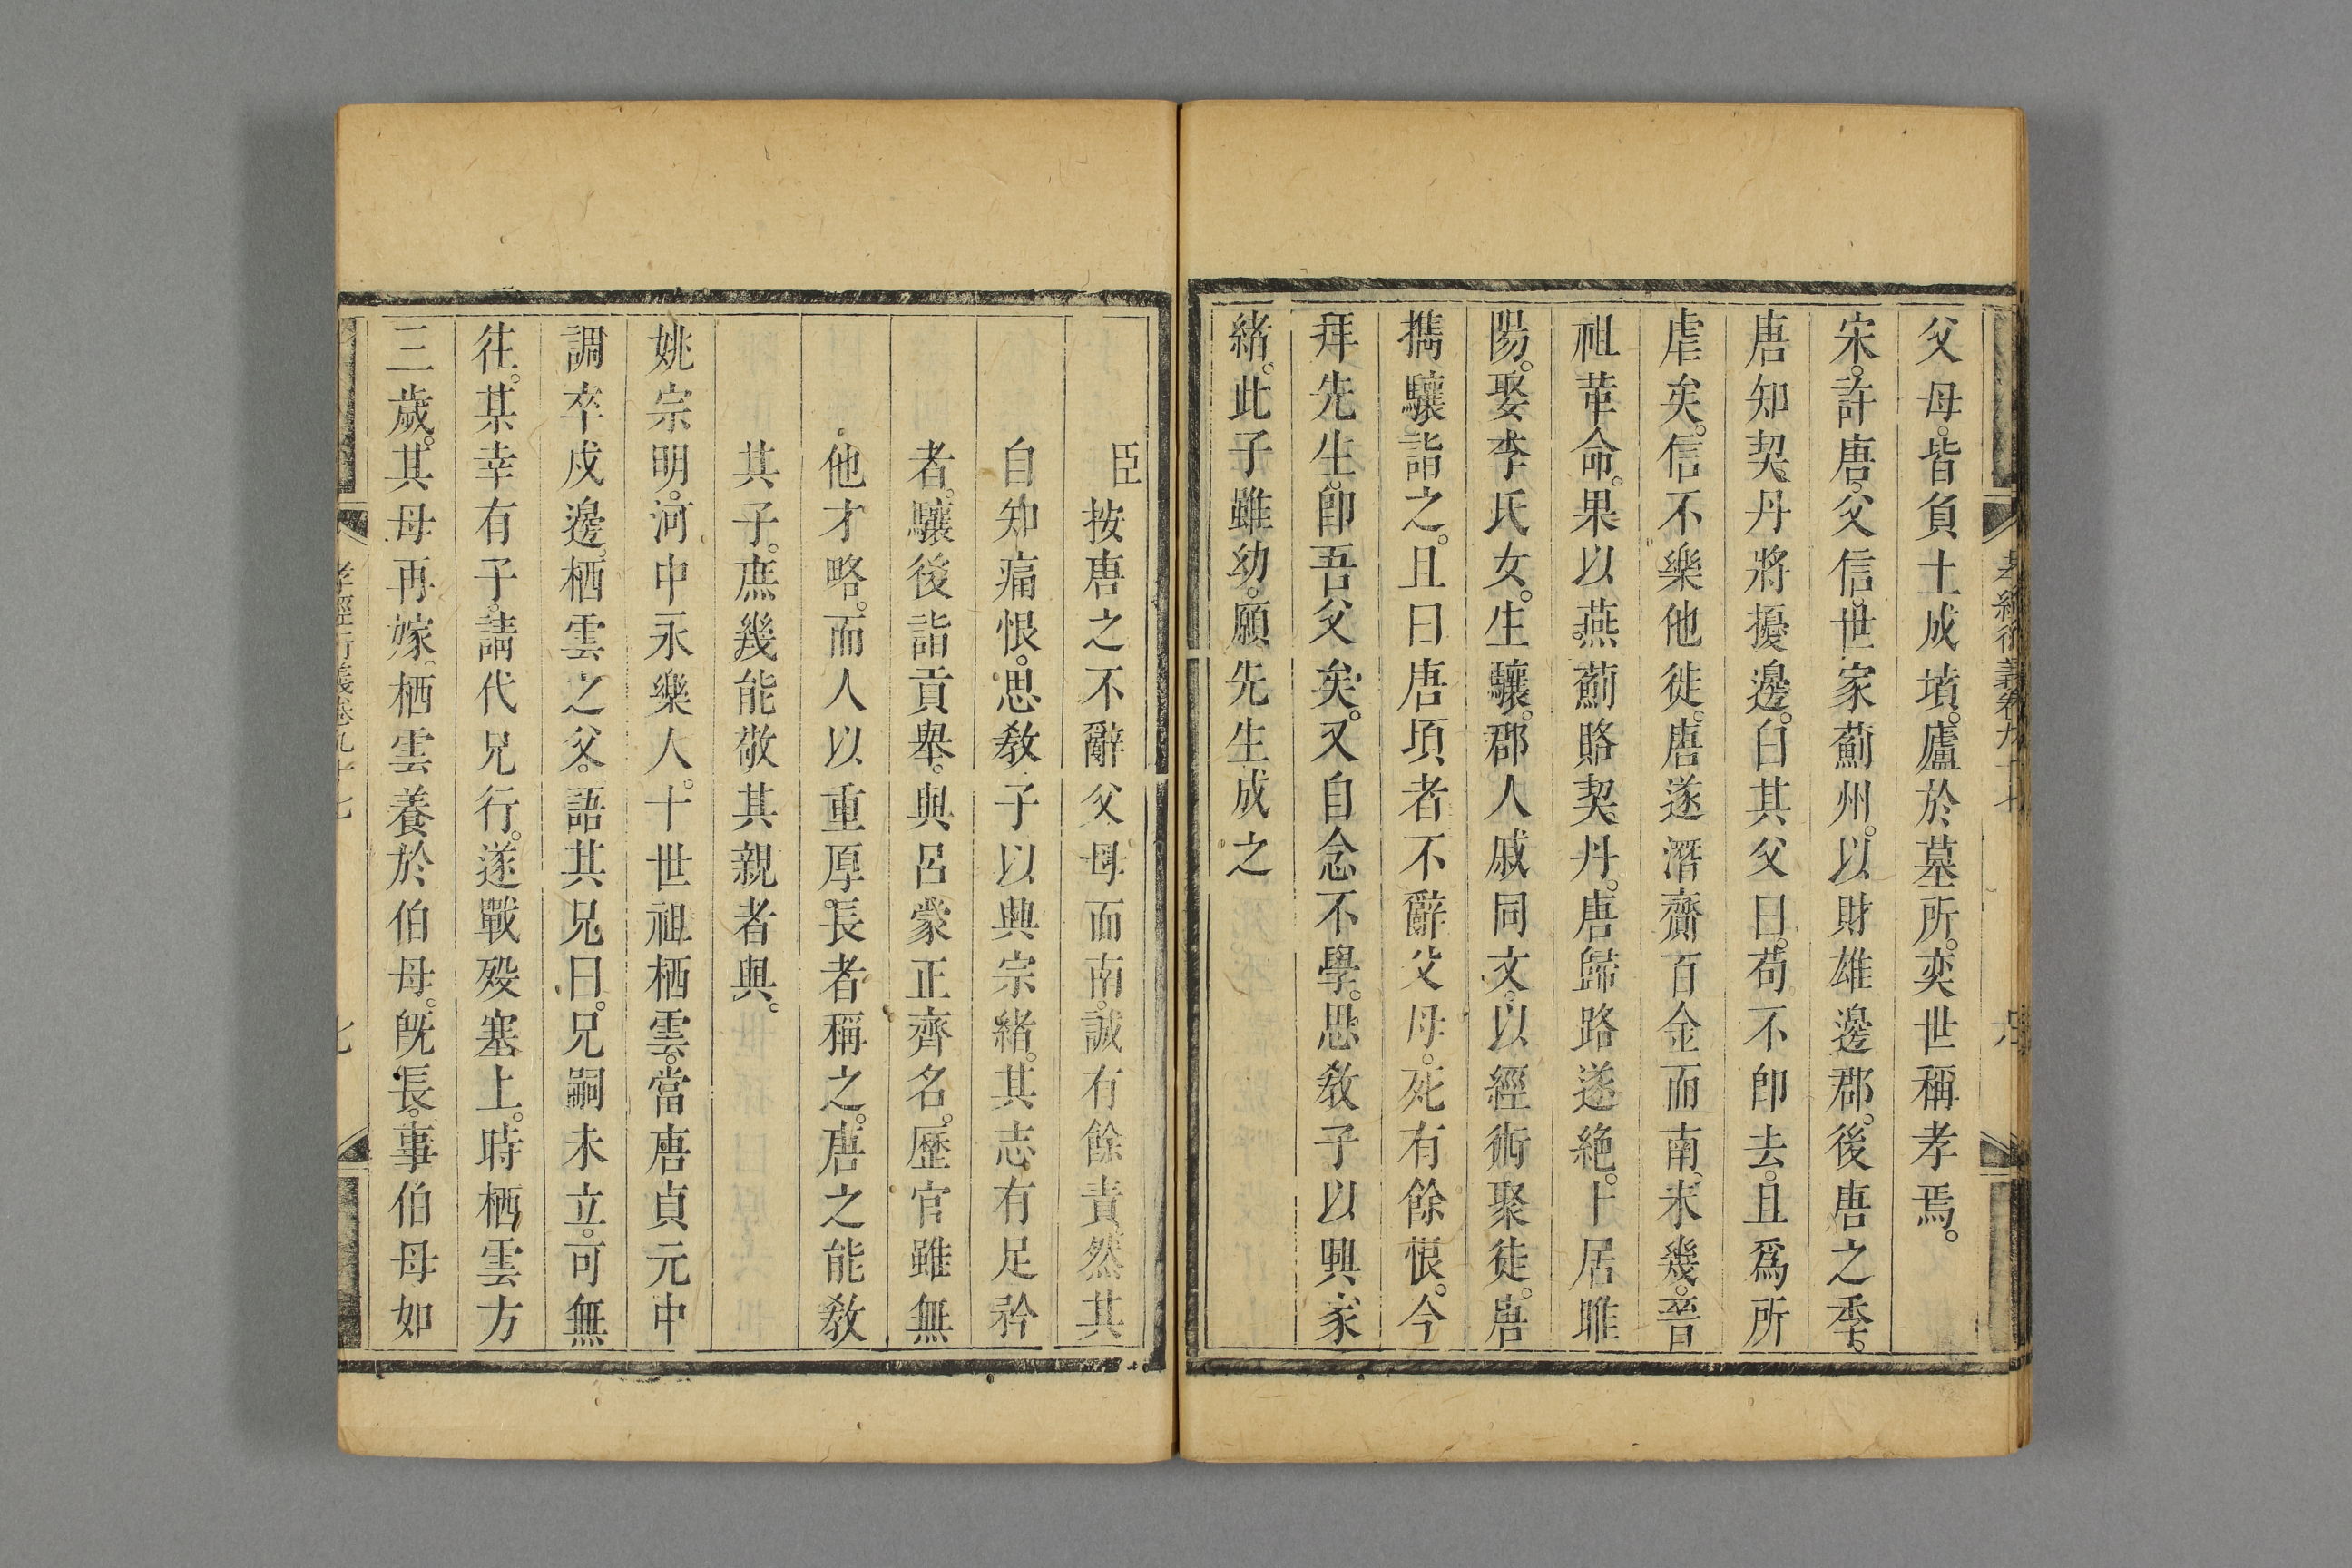 孝經衍義卷九十七
六
父母。皆負土成墳。廬於墓所。奕世稱孝焉。
宋。許唐。父信。世家薊州。以財雄邊郡。後唐之季。
唐知契丹將擾邊。白其父曰。苟不卽去。且爲所
虐矣。信不樂他徙。唐遂潛齎百金而南。未幾。晉
祖革命。果以燕薊賂契丹。唐歸路遂絶。卜居睢
陽。娶李氏女。生驤。郡人戚同文。以經術聚徒。唐
攜驤詣之。且曰唐頃者不辭父母。死有餘恨。今
拜先生。卽吾父矣。又自念不學。思敎子以興家
緒。此子雖幼。願先生成之
臣按唐之不辭父母而南。誠有餘責。然其
自知痛恨。思敎子以興宗緒。其志有足矜
者。驤後詣貢舉。與呂蒙正齊名。歷官雖無
他才略。而人以重厚長者稱之。唐之能敎
其子。庶幾能敬其親者與。
姚宗明。河中永樂人。十世祖栖雲。當唐貞元中
調卒戍邊。栖雲之父。語其兄曰。兄嗣未立。可無
往。某幸有子。請代兄行。遂戰殁塞上。時栖雲方
三歲。其母再嫁。栖雲養於伯母。旣長。事伯母如
孝經衍義卷九十七
七